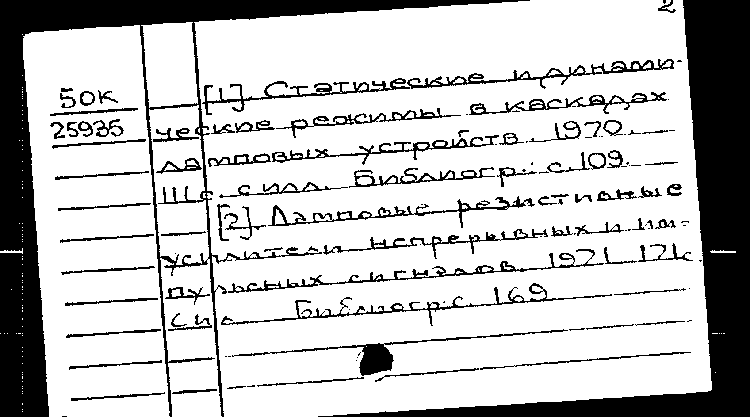 2
50К [1]. Статические и динами-
25935 ческие режимы в каскадах
ламповых устройств. 1970.
111с. с илл. Библиогр.: с. 109.
[2]. Ламповые резистивные
усилители непрерывных и им-
пульсных сигналов. 1971 171с.
с ил Библиогр: с. 169